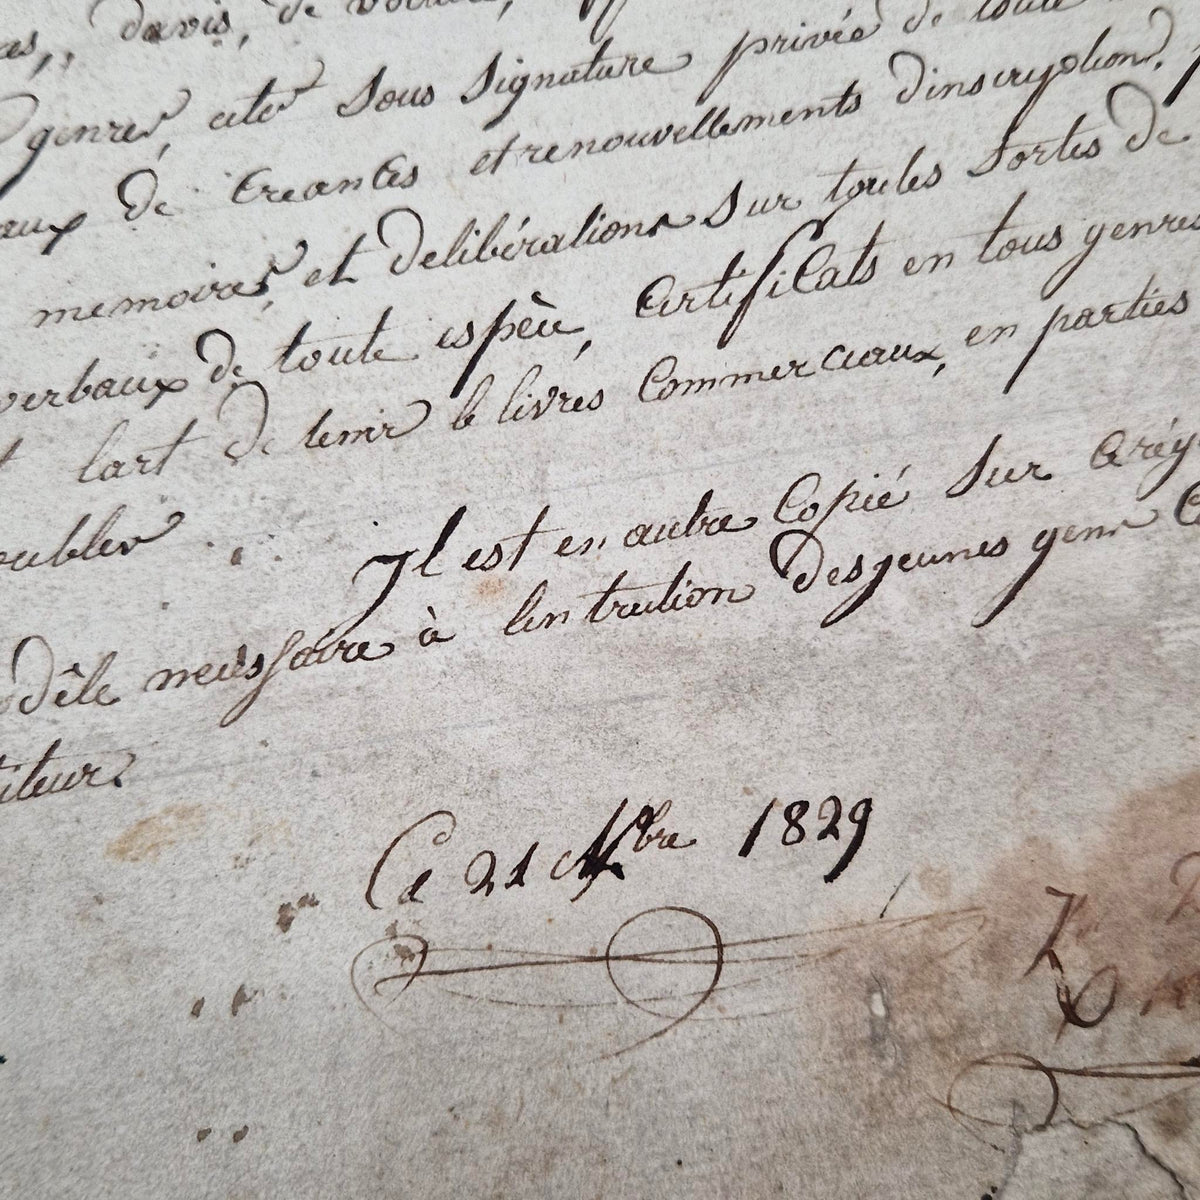 davis, de
genres, acte sous signature privée de toute
aux de creances et renouvellements dinscryption,
memoires, et delibérations sur toutes sortes de
verbaux de toute espèce, Certificats en tous genres
lart de tenir le livres Commerciaux, en parties
oubles
Il est en autre Copié sur
dêle necessaire à lintrution des jeunes gens
titeur.
Ce 21 Nbre 1829